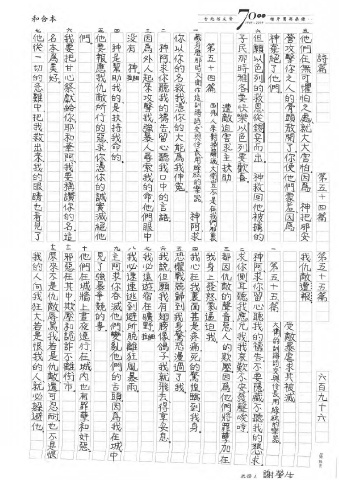 和合本
70
詩篇
第五十四篇
他們在無可懼怕之處就大大害怕因為 神把那安
營攻擊你之人的骨頭散開了你使他們蒙羞因為
神棄絕了他們
但願以色列的救恩從錫安而出 神救回他被擄的
子民那時雅各要快樂以色列要歡喜
遭敵迫害求主扶助
第五十四篇
神阿求
你以你的名救我憑你的大能為我伸冤
神阿求你聽我的禱告留心聽我口中的言語
因為外人起來攻擊我強暴人尋索我的命他們眼中
沒有 神
神是幫助我的是扶持我命的
他要報應我仇敵所行的惡求你憑你的誠實滅絕他
們
我要把甘心祭獻給你耶和華阿我要稱讚你的名這
名本為美好
他從一切的急難中把我救出來我的眼睛也看見了
第五十五篇
六百九十六
我仇敵遭報
第五十五篇
神阿求你留心聽我的禱告不要隱藏不聽我的懇求
求你側耳聽我應允我我哀歎不安發聲唉哼
都因仇敵的聲音惡人的欺壓因為他們將罪孽加在
我身上發怒氣逼迫我
我心在我裏面甚是疼痛死的驚惶臨到我身
恐懼戰兢歸到我身驚恐漫過了我
我說但願我有翅膀像鴿子我就飛去得享安息
我必遠遊宿在曠野
我必速速逃到避所脫離狂風暴雨
主阿求你吞滅他們變亂他們的舌頭因為我在城中
見了強暴爭競的事
他們在城牆上晝夜遶行在城內也有罪孽和奸惡
邪惡在其中欺壓和詭詐不離街市
原來不是仇敵辱罵我若是仇敵還可忍耐也不是恨
我的人向我狂大若是恨我的人就必躲避他
謝學生